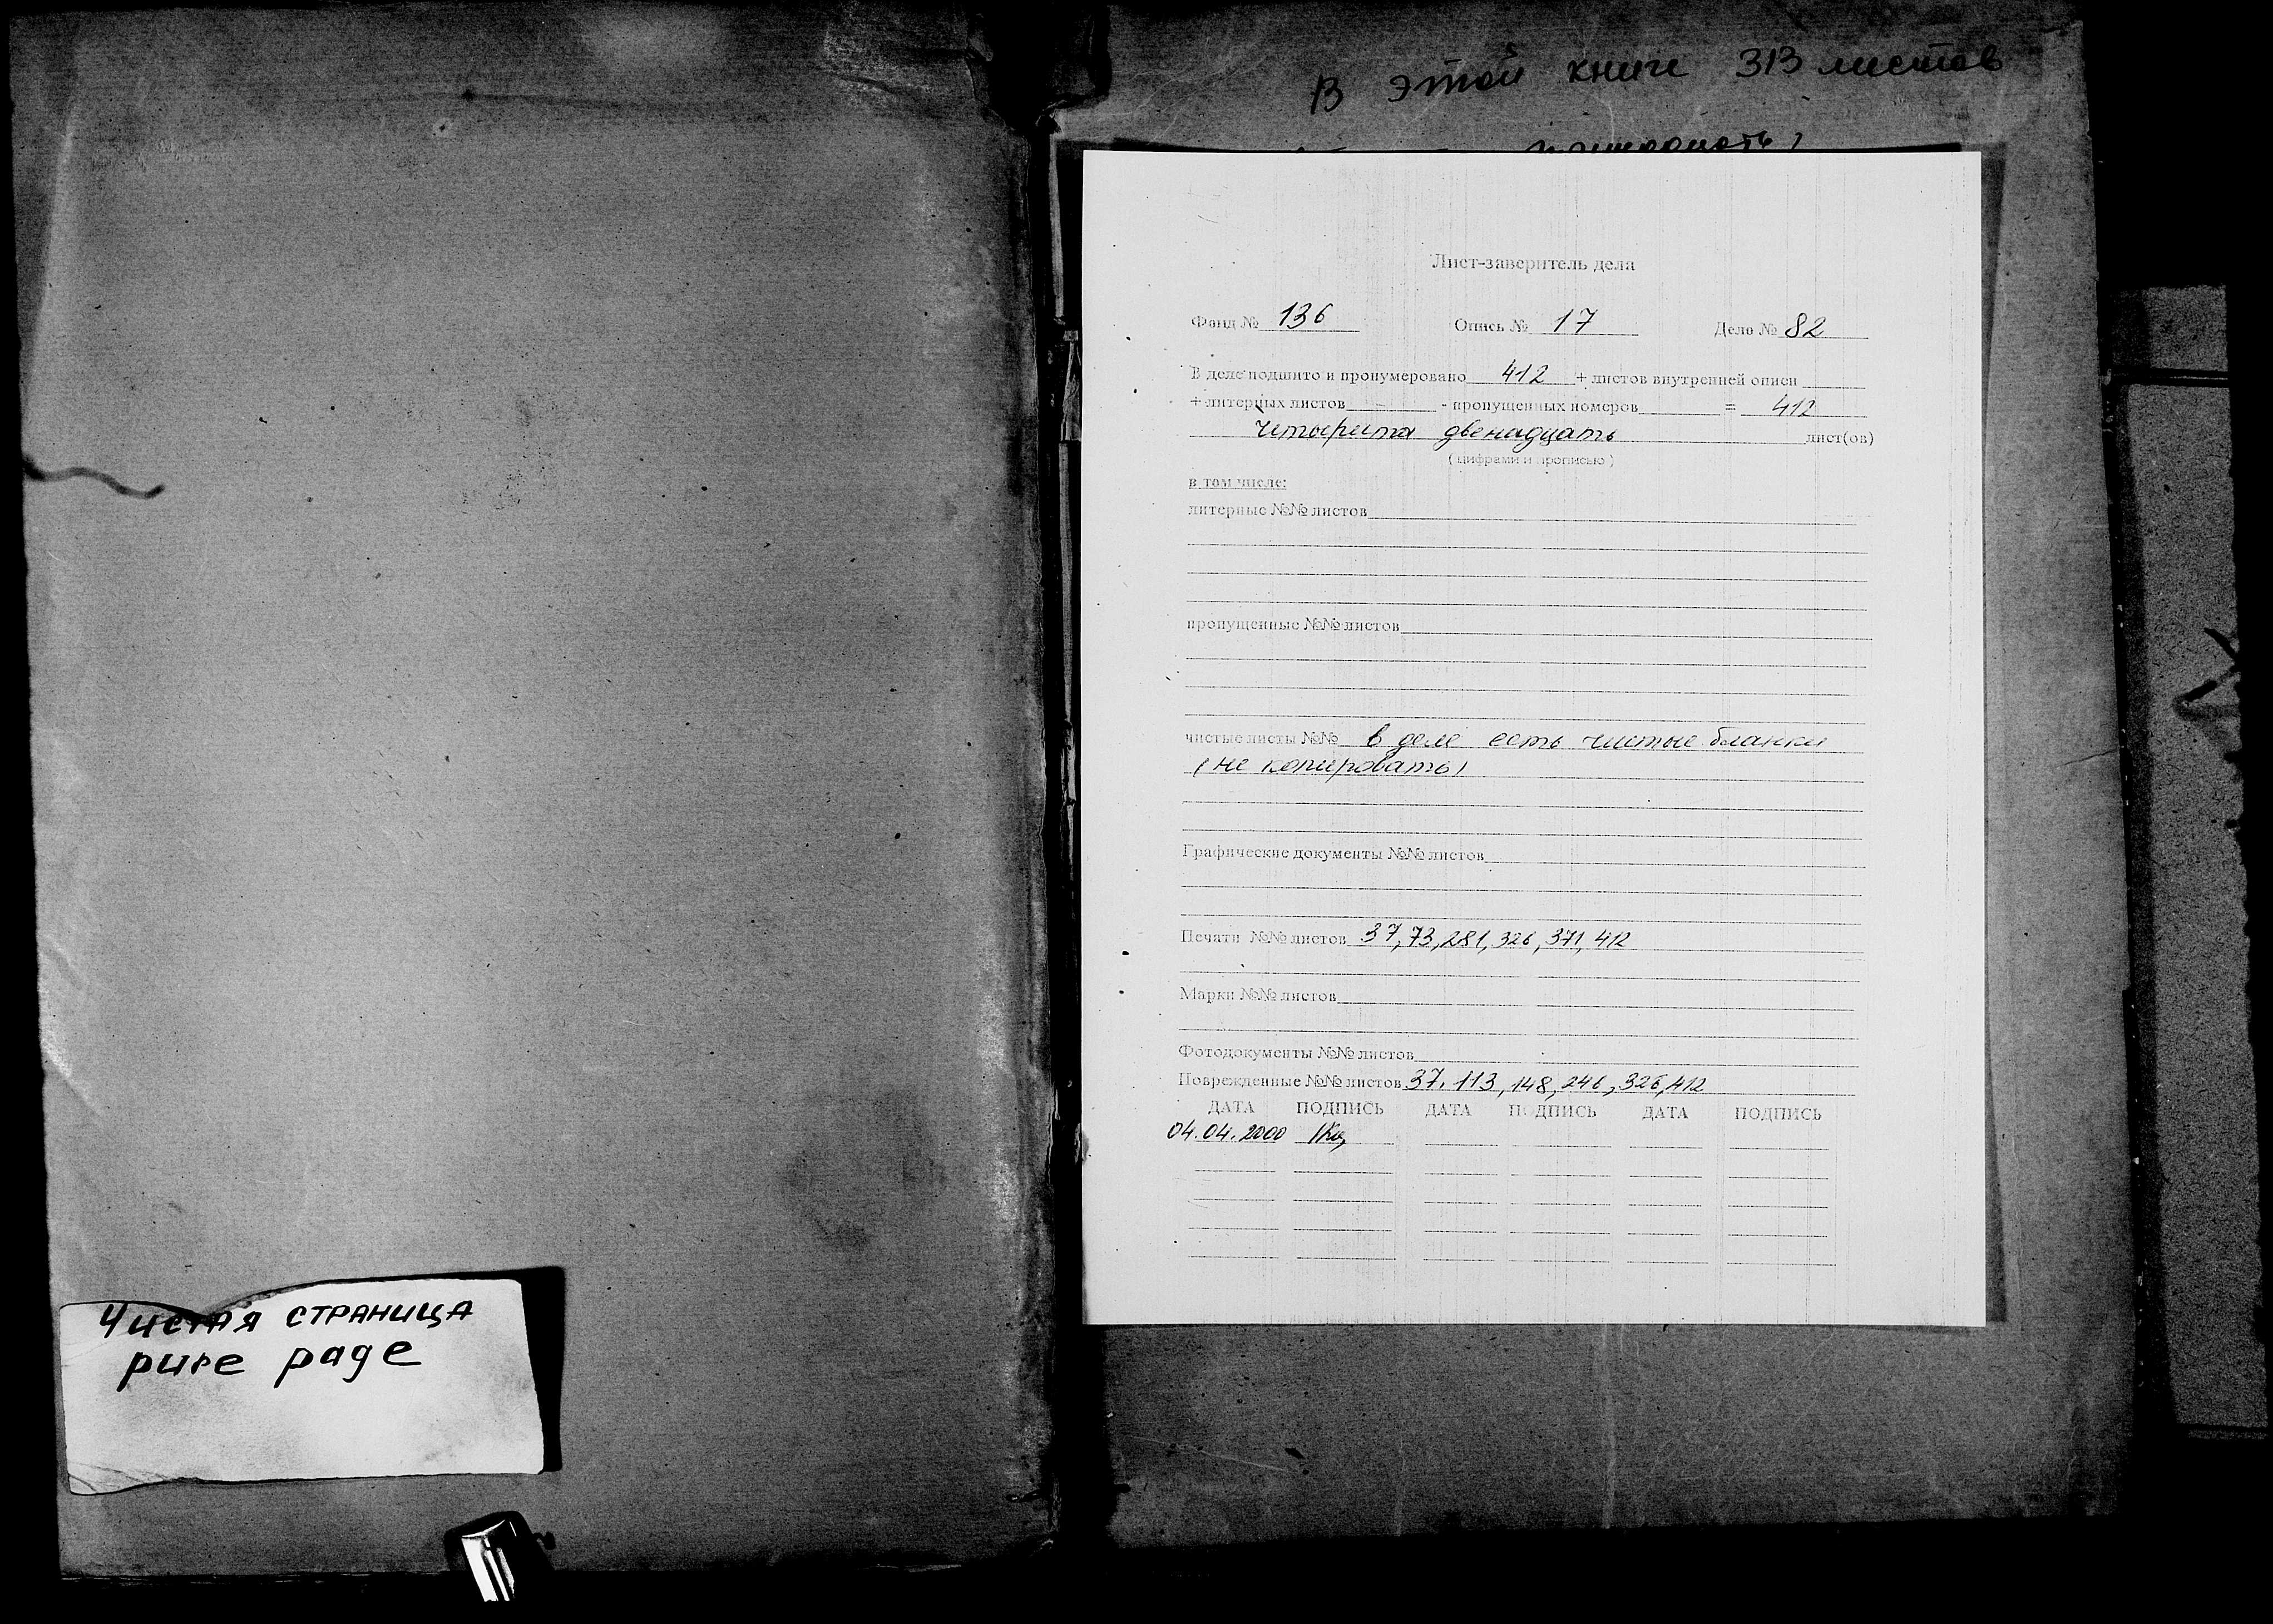 Чистая страница
pure page
В этой книге 313 листов
Лист-заверитель дела
Фонд № 136 Опись № 17 Дело № 82
В деле подшито и пронумеровано 412 + листов внутренней описи
+ литерных листов - пропущенных номеров = 412
четыреста двенадцать лист(ов)
(цифрами и прописью)
в том числе:
литерные №№ листов
пропущенные №№ листов
чистые листы №№ в деле есть чистые бланки
(не копировать)
Графические документы №№ листов
Печати №№ листов 37, 73, 281, 326, 371, 412
Марки №№ листов
Фотодокументы №№ листов
Поврежденные №№ листов 37, 113, 148, 246, 326, 412
ДАТА ПОДПИСЬ ДАТА ПОДПИСЬ ДАТА ПОДПИСЬ
04.04.2000